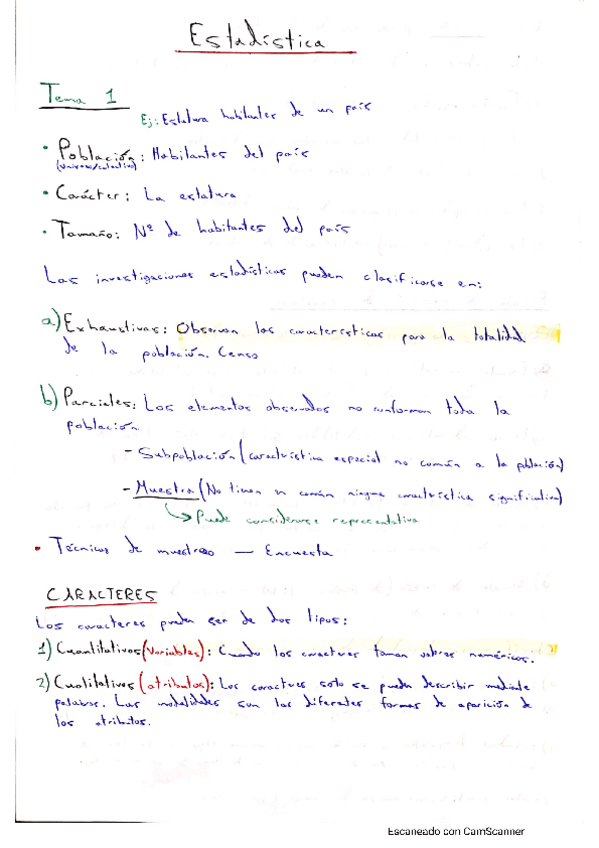 Estadística
Tema 1
Ej: Estatura habitantes de un país
• Población: Habitantes del país
(Universo/colectivo)
• Carácter: La estatura
• Tamaño: Nº de habitantes del país
Las investigaciones estadísticas pueden clasificarse en:
a) Exhaustivas: Observan las características para la totalidad
de la población. Censo
b) Parciales: Los elementos observados no conforman toda la
población.
- Subpoblación (característica especial no común a la población)
- Muestra (No tienen en común ninguna característica significativa)
↳ Puede considerarse representativa
• Técnicas de muestreo — Encuesta
CARACTERES
Los caracteres pueden ser de dos tipos:
1) Cuantitativos (Variables): Cuando los caracteres toman valores numéricos.
2) Cualitativos (atributos): Los caracteres solo se pueden describir mediante
palabras. Las modalidades son las diferentes formas de aparición de
los atributos.
Escaneado con CamScanner